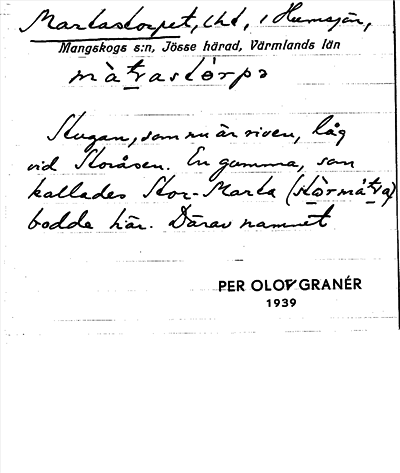 Martastorpet, lht, i Humsjön,
Mangskogs s:n, Jösse härad, Värmlands län
màtrastórpə
Stugan, som nu är riven, låg
vid Storåsen. En gumma, som
kallades Stor-Marta (stòrmátra)
bodde här. Därav namnet
PER OLOF GRANÉR
1939